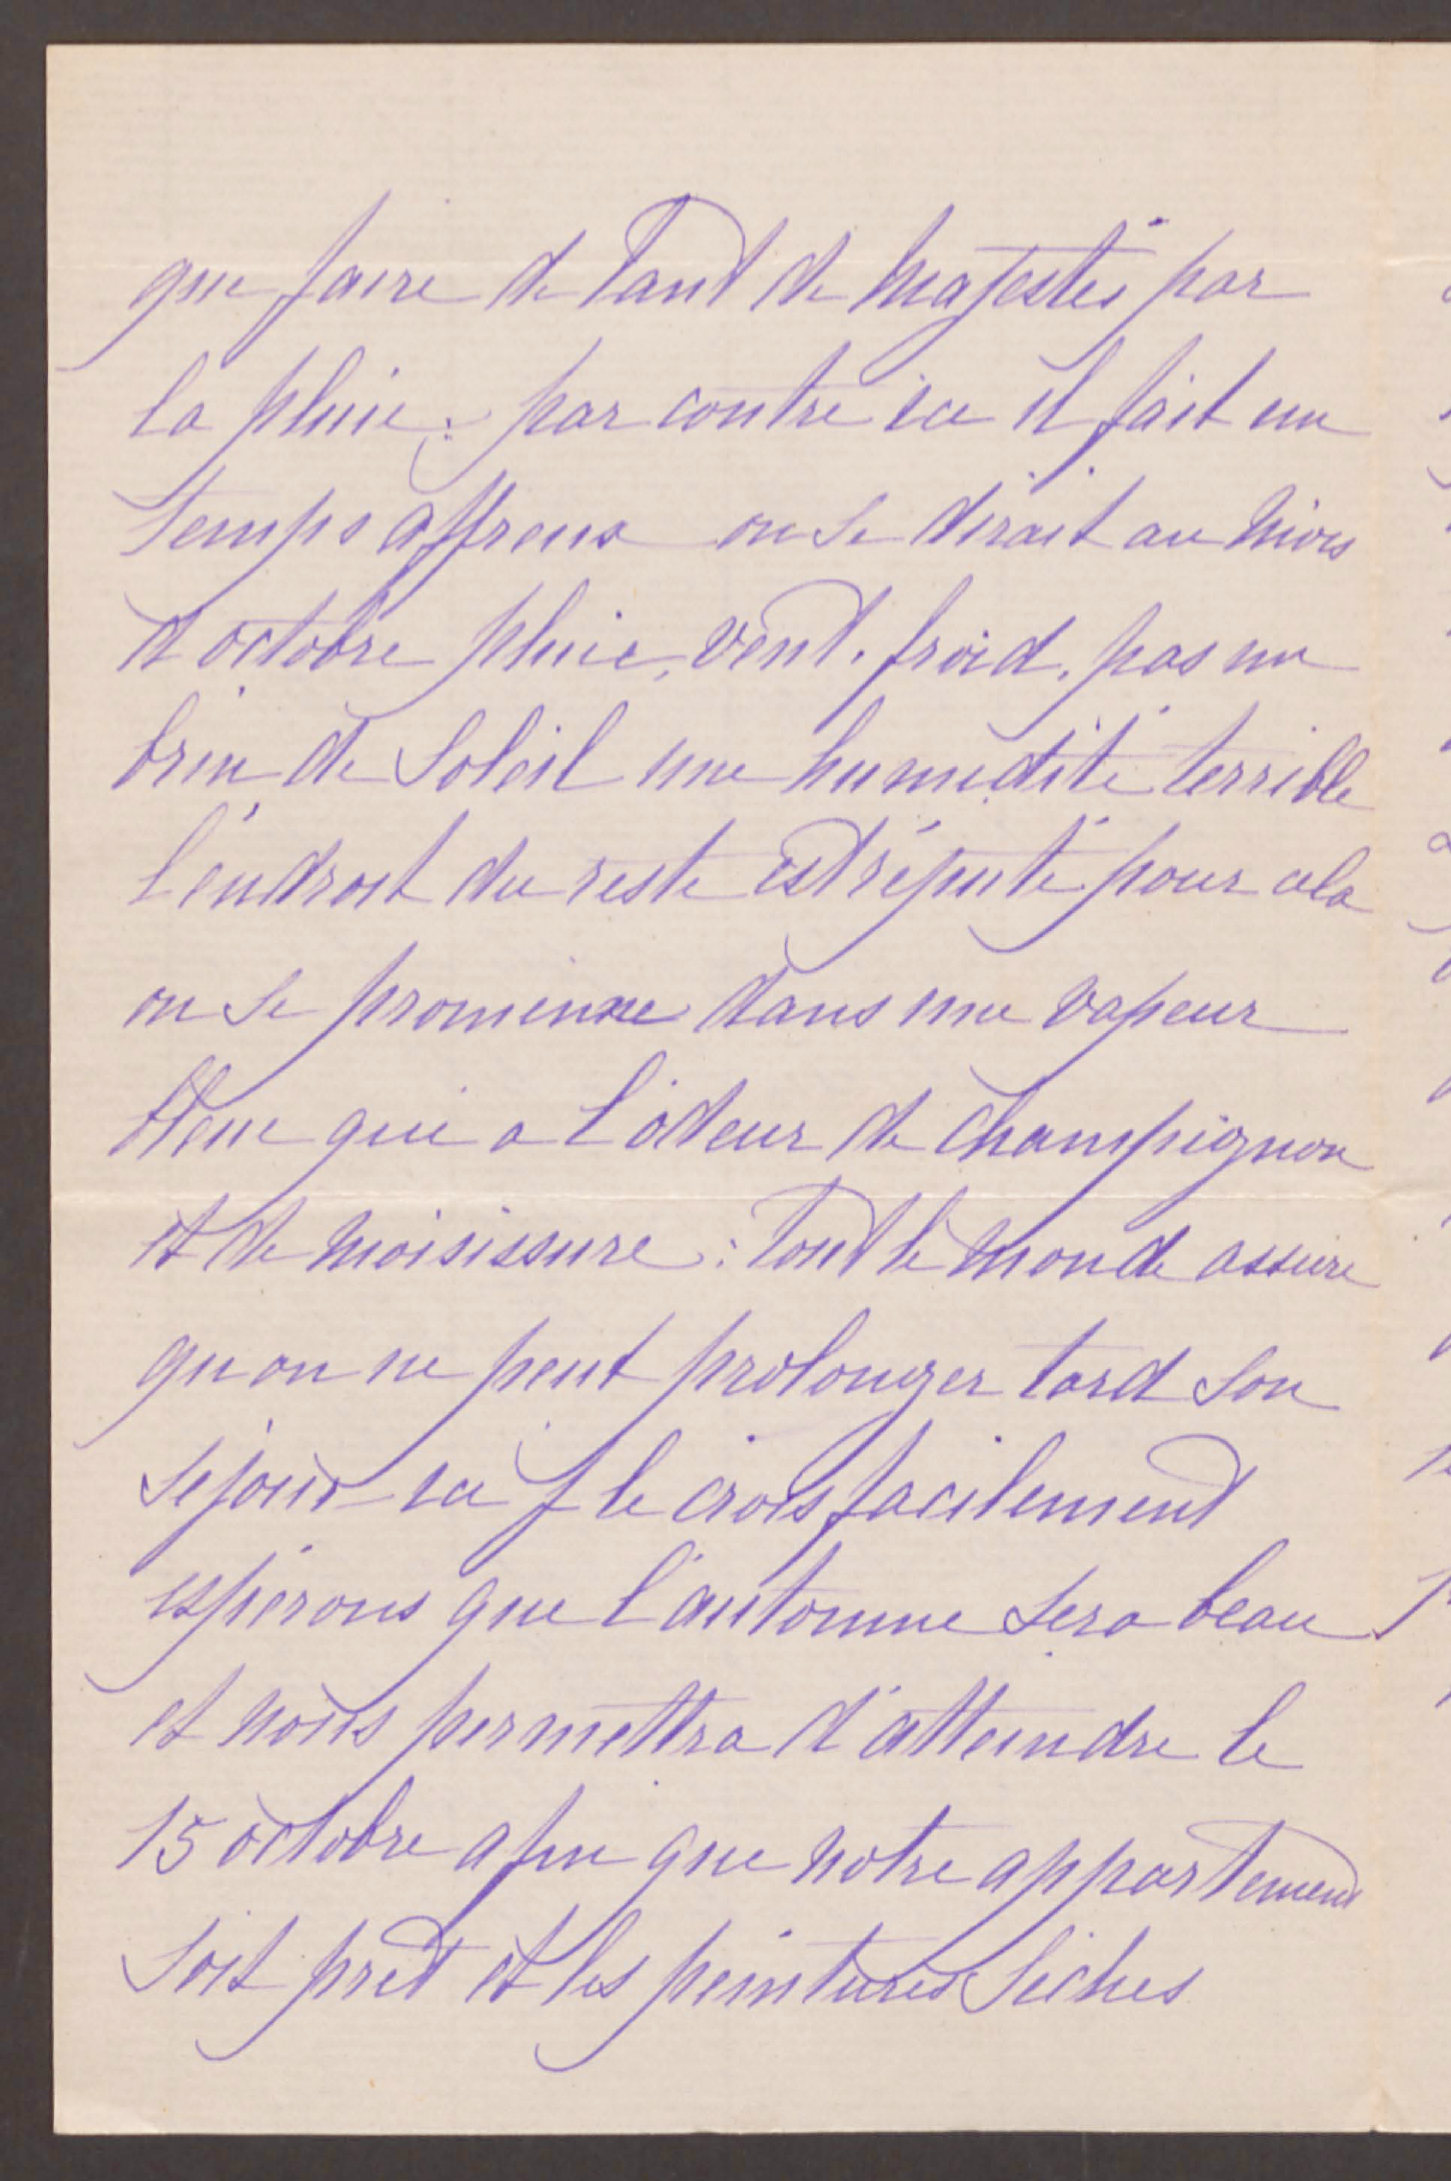 que faire de tant de majestés par
la pluie; par contre ici il fait un
temps affreux on se dirait au mois
d octobre pluie, vent. froid. pas un
brin de Soleil une humidité terrible
l'endroit du reste est réputé pour cela
on se promène dans une vapeur
bleue qui a l'odeur de champignon
et de moisissure: tout le monde assure
qu on ne peut prolonger tard son
séjour ici je le crois facilement
espérons que l'automne sera beau
et nous permettra d'atteindre le
15 octobre afin que notre appartement
soit prêt et les peintures sèches